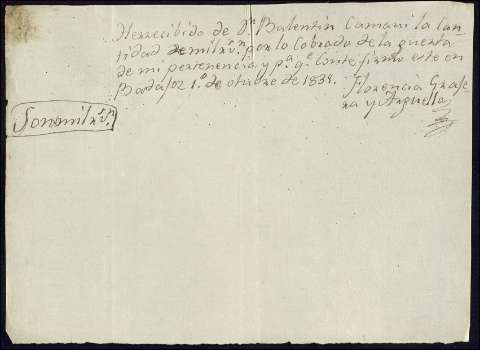 Herrecibido de Dn Balentin Camaui la Can-
tidad de mil rs vn por lo Cobrado de la quenta
de mi pertenencia y pa qe Conste firmo este en
Badajoz 1o de otubre de 1834.
Florencia Grase-
ra y Arguello
Son mil rs vn